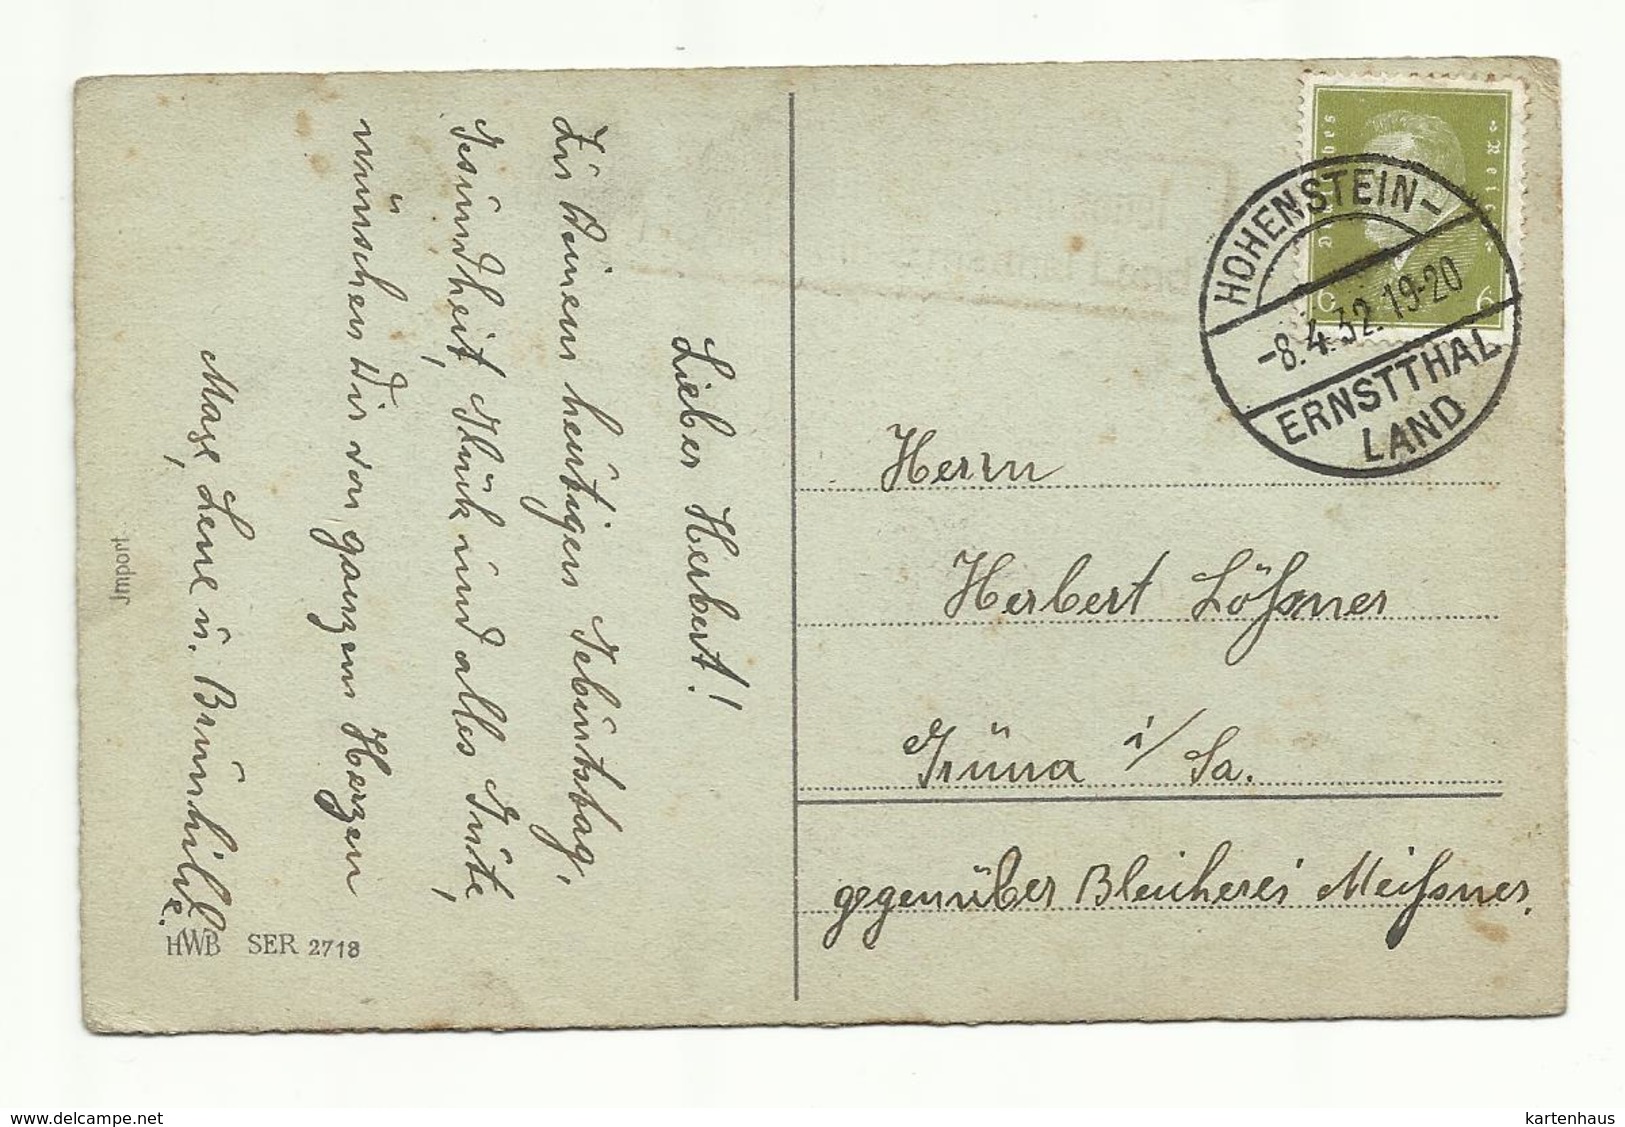 Lieber Herbert!
Zu Deinem heutigen Geburtstag,
Gesundheit, Glück und alles Gute,
wünschen Dir von ganzem Herzen
Lene u. Brunhilde.
Import
HWB SER 2718
Deutsches Reich
6 6
HOHENSTEIN-
-8.4.32.19-20
ERNSTTHAL
LAND
Herrn
Herbert Lößner
Grüna i/Sa.
gegenüber Bleicherei Meißner.
www.delcampe.net
kartenhaus